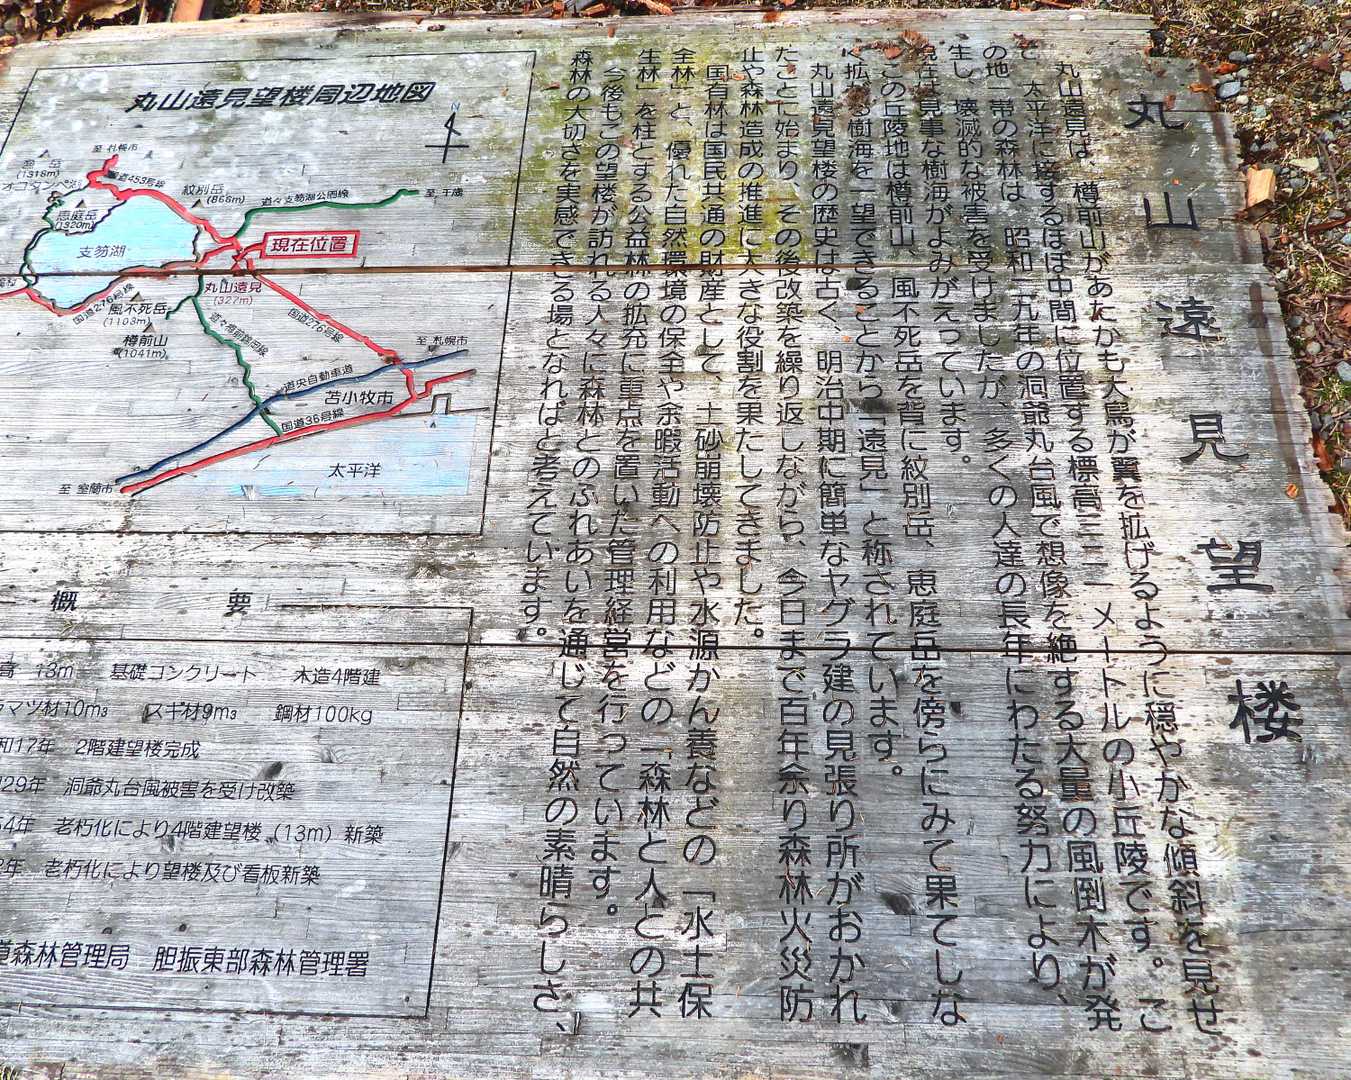 丸山遠見望楼
丸山遠見は、樽前山があたかも大鳥が翼を拡げるように穏やかな傾斜を見せ
太平洋に接するほぼ中間に位置する標高三二一メートルの小丘陵です。こ
の地一帯の森林は、昭和二九年の洞爺丸台風で想像を絶する大量の風倒木が発
生し、壊滅的な被害を受けましたが、多くの人達の長年にわたる努力により、
現在は見事な樹海がよみがえっています。
この丘陵地は樽前山、風不死岳を背に紋別岳、恵庭岳を傍らにみて果てしな
く拡がる樹海を一望できることから「遠見」と称されています。
丸山遠見望楼の歴史は古く、明治中期に簡単なヤグラ建の見張り所がおかれ
たことに始まり、その後改築を繰り返しながら、今日まで百年余り森林火災防
止や森林造成の推進に大きな役割を果たしてきました。
国有林は国民共通の財産として、土砂崩壊防止や水源かん養などの「水土保
全林」と、優れた自然環境の保全や余暇活動への利用などの「森林と人との共
生林」を柱とする公益林の拡充に重点を置いた管理経営を行っています。
今後もこの望楼が訪れる人々に森林とのふれあいを通じて自然の素晴らしさ、
森林の大切さを実感できる場となればと考えています。
丸山遠見望楼周辺地図
N
至 札幌市
(1318m)
オコタンペ
国道453号線
紋別岳
(866m)
道々支笏湖公園線
至 千歳
恵庭岳
(1320m)
支笏湖
現在位置
丸山遠見
(327m)
国道276号線
風不死岳
(1103m)
樽前山
(1041m)
国道276号線
至 札幌市
道央自動車道
苫小牧市
国道36号線
太平洋
至 室蘭市
概 要
高 13m 基礎コンクリート 木造4階建
マツ材10m³ スギ材9m³ 鋼材100kg
和17年 2階建望楼完成
29年 洞爺丸台風被害を受け改築
54年 老朽化により4階建望楼(13m)新築
年 老朽化により望楼及び看板新築
道森林管理局 胆振東部森林管理署